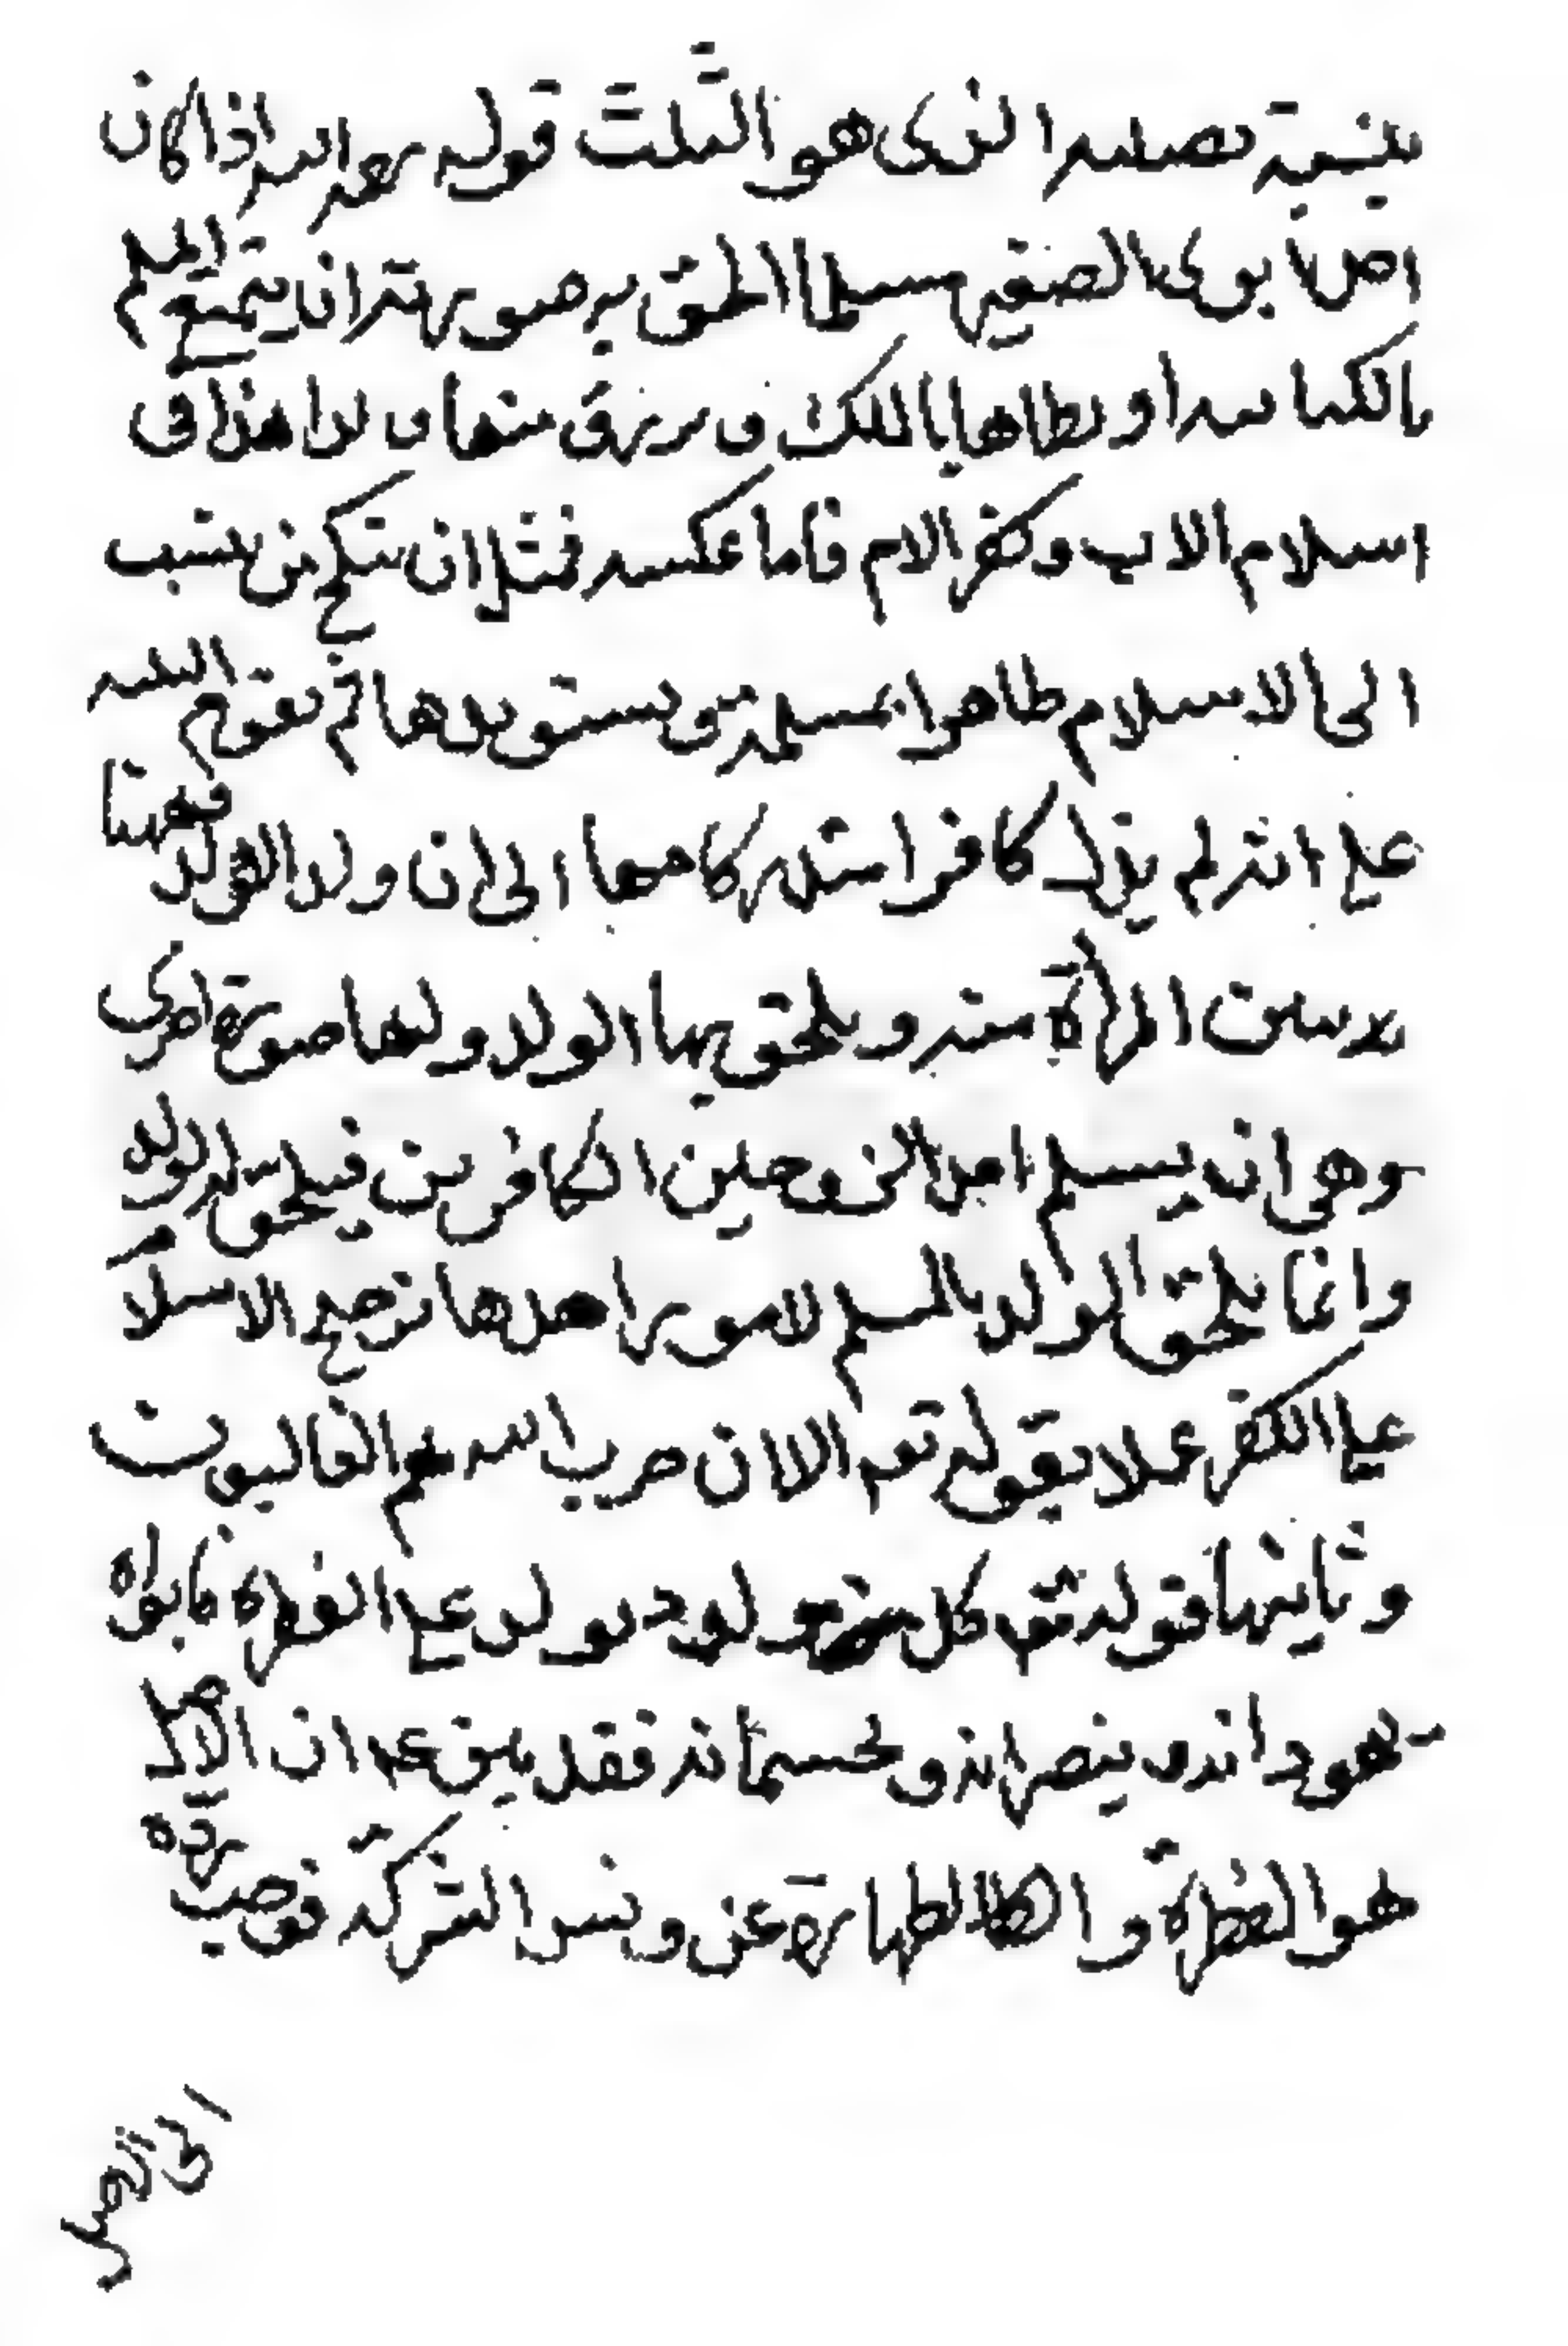 بنسبة نصيبه الذى هو الثلث قوله رحمه الله اذا كان
احد ابوى الصغير مسلما الحق به صورته ان يتمتع المسلم
بالكتابيه او يطاها بالملك ويرزق منها ولدا هذا فى
اسلام الاب وكفر الام فاما عكسه فمثل ان ينكح من ينتسب
الى الاسلام ظاهرا بمسلمة ويستولدها ثم تقوم البينه
على انه لم يزل كافرا مذ كا الى ان ولد الولد فههنا
بدست المرأة منه ويلحق بها الولد ولها صورة اخرى
وهى ان يسلم احد الزوجين الكافرين فيلحق به الولد
وانما يلحق الولد بالمسلم لامور احدها ترجيح الاسلام
على الكفر عملا بقوله تعه الا ان حزب الله هم الغالبون
وثانيها قوله كل مولود يولد على الفطرة فابواه
يهودانه وينصرانه ويمجسانه فقد بين عم ان الاصل
هو الفطرة و الطهارة عن دنس الشرك فوجب رده
الى الاصل